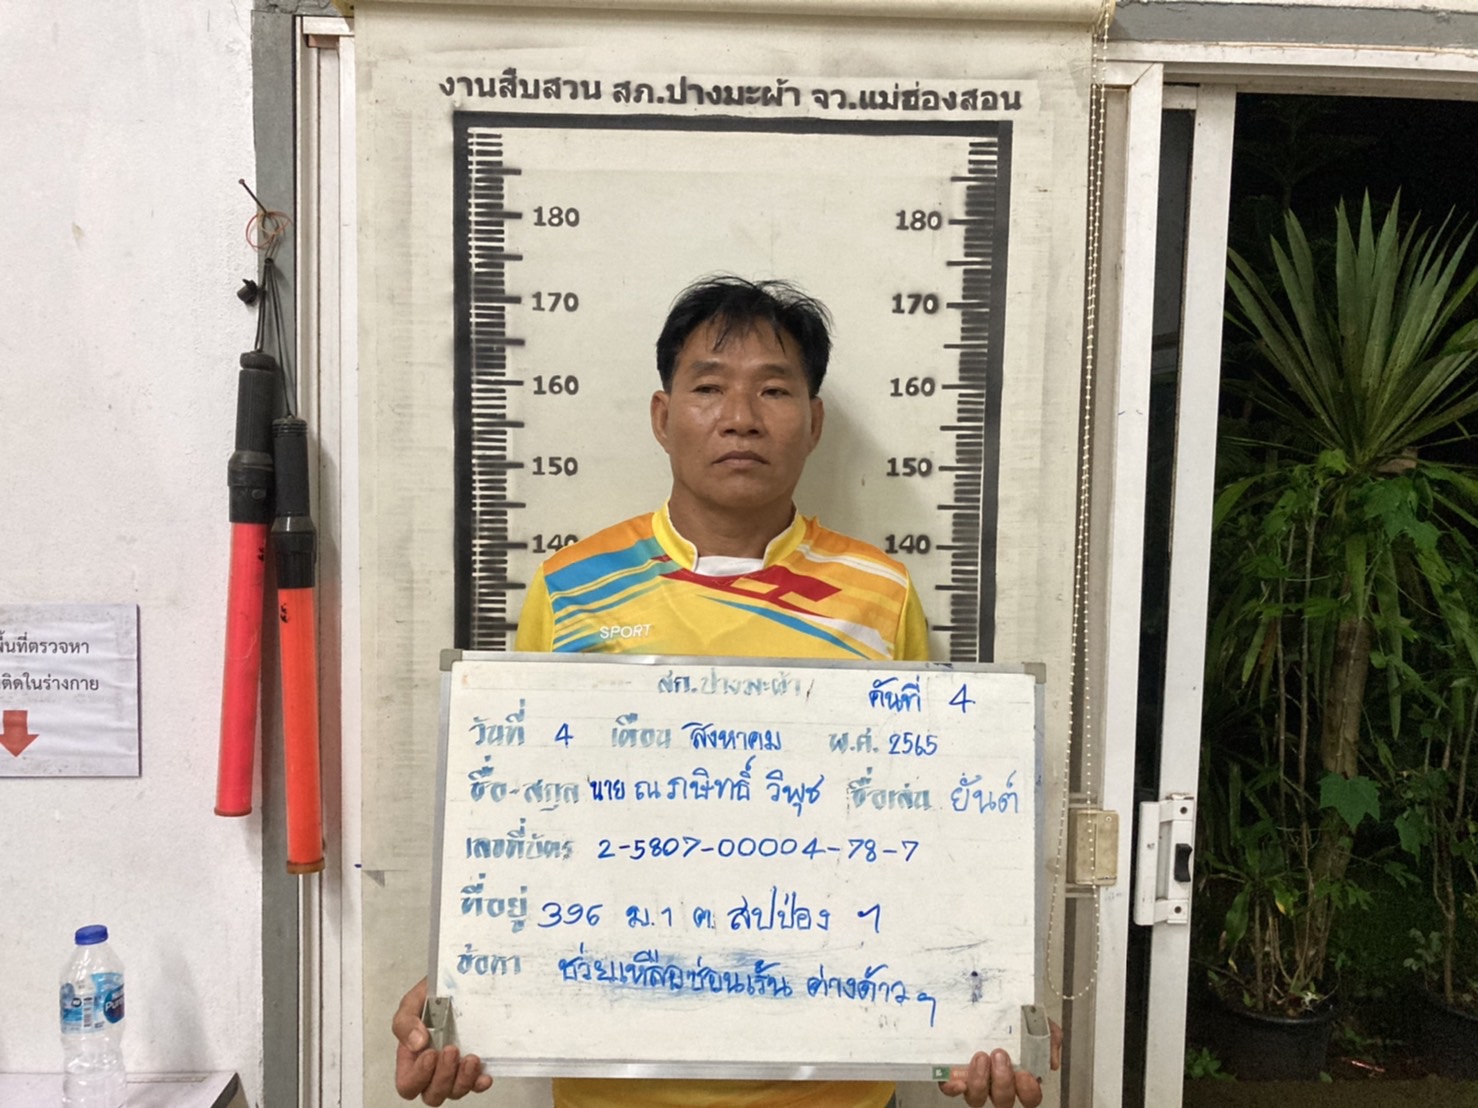 งานสืบสวน สภ.ปางมะผ้า จว.แม่ฮ่องสอน
180 180
170 170
160 160
150 150
140 140
SPORT
สภ.ปางมะผ้า คันที่ 4
วันที่ 4 เดือน สิงหาคม พ.ศ. 2565
ชื่อ-สกุล นาย ณภษิทธิ์ วิพุช ชื่อเล่น ยันต์
เลขที่บัตร 2-5807-00004-78-7
ที่อยู่ 396 ม.1 ต. สบป่อง ฯ
ข้อหา ช่วยเหลือซ่อนเร้น ต่างด้าว ฯ
พื้นที่ตรวจหา
ติดในร่างกาย